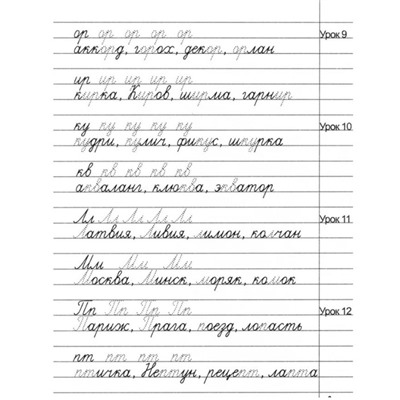 ор ор ор ор ор ор Урок 9
аккорд, горох, декор, орлан
ир ир ир ир ир
кирка, Киров, ширма, гарнир
ку ку ку ку ку Урок 10
кудри, кулич, фикус, шкурка
кв кв кв кв кв
акваланг, клюква, экватор
Лл Лл Лл Лл Лл Урок 11
Латвия, Ливия, лимон, колчан
Мм Мм Мм
Москва, Минск, моряк, комок
Пр Пр Пр Пр Урок 12
Париж, Прага, поезд, лопасть
пт пт пт пт
птичка, Нептун, рецепт, лапта